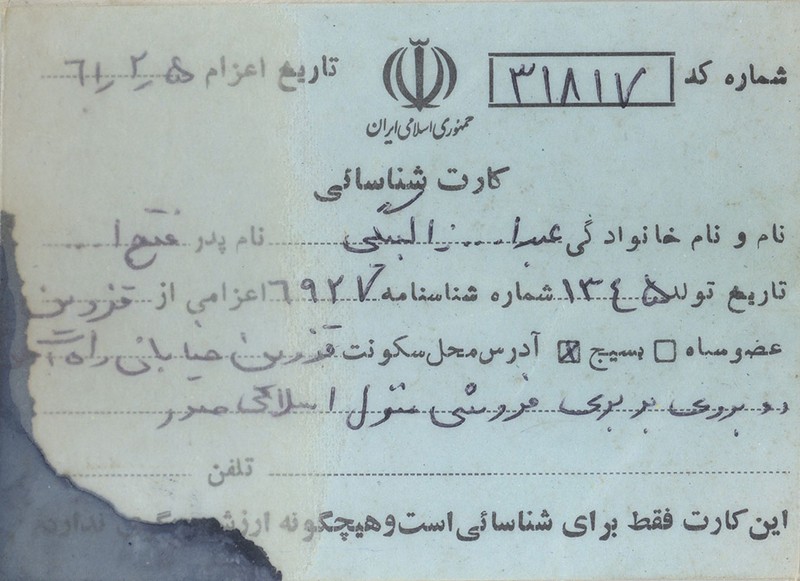 شماره کد ۳۱۸۱۷
تاریخ اعزام ۶۱٫۲٫۵
جمهوری اسلامی ایران
کارت شناسائی
نام و نام خانوادگی عبدا... زالبیگی نام پدر فتح ا...
تاریخ تولد ۱۳٤۵ شماره شناسنامه ۶۹۲۷ اعزامی از قزوین
عضو سپاه بسیج آدرس محل سکونت قزوین خیابانی راه
روبروی بربری فروشی منزل اسلامی صدر
تلفن
این کارت فقط برای شناسائی است و هیچگونه ارزش ندارد